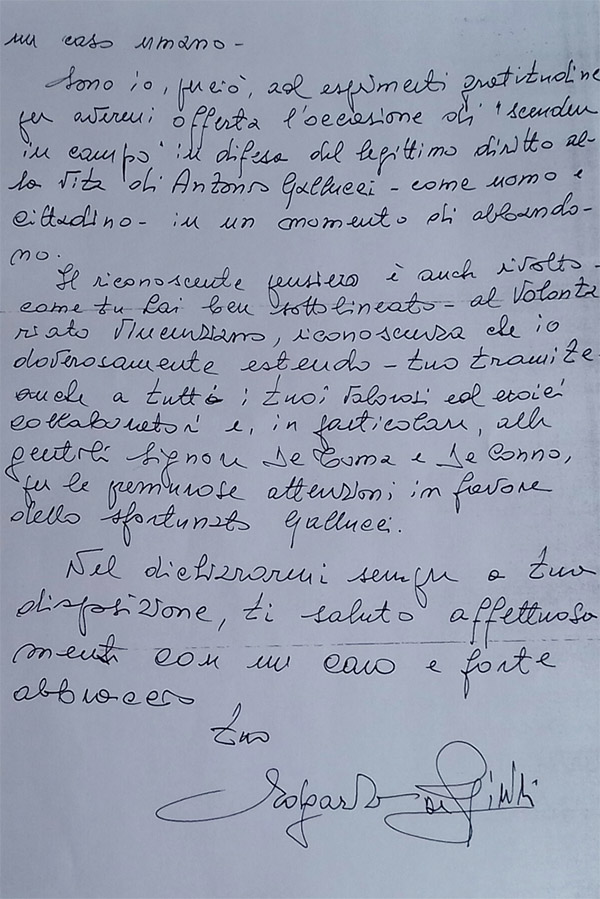 un caso umano -
Sono io, perciò, ad esprimerti gratitudine
per avermi offerta l'occasione di "scendere
in campo" in difesa del legittimo diritto al-
la vita di Antonio Gallucci - come uomo e
cittadino - in un momento di abbando-
no.
Il riconoscente pensiero è anche rivolto -
come tu hai ben sottolineato - al Volonta
riato Vincenziano, riconoscenza che io
doverosamente estendo - tuo tramite -
anche a tutti i tuoi valorosi ed eroici
collaboratori e, in particolare, alle
gentili Signore De Toma e De Donno,
per le premurose attenzioni in favore
dello sfortunato Gallucci.
Nel dichiararmi sempre a tua
disposizione, ti saluto affettuosa
mente con un caro e forte
abbraccio
tuo